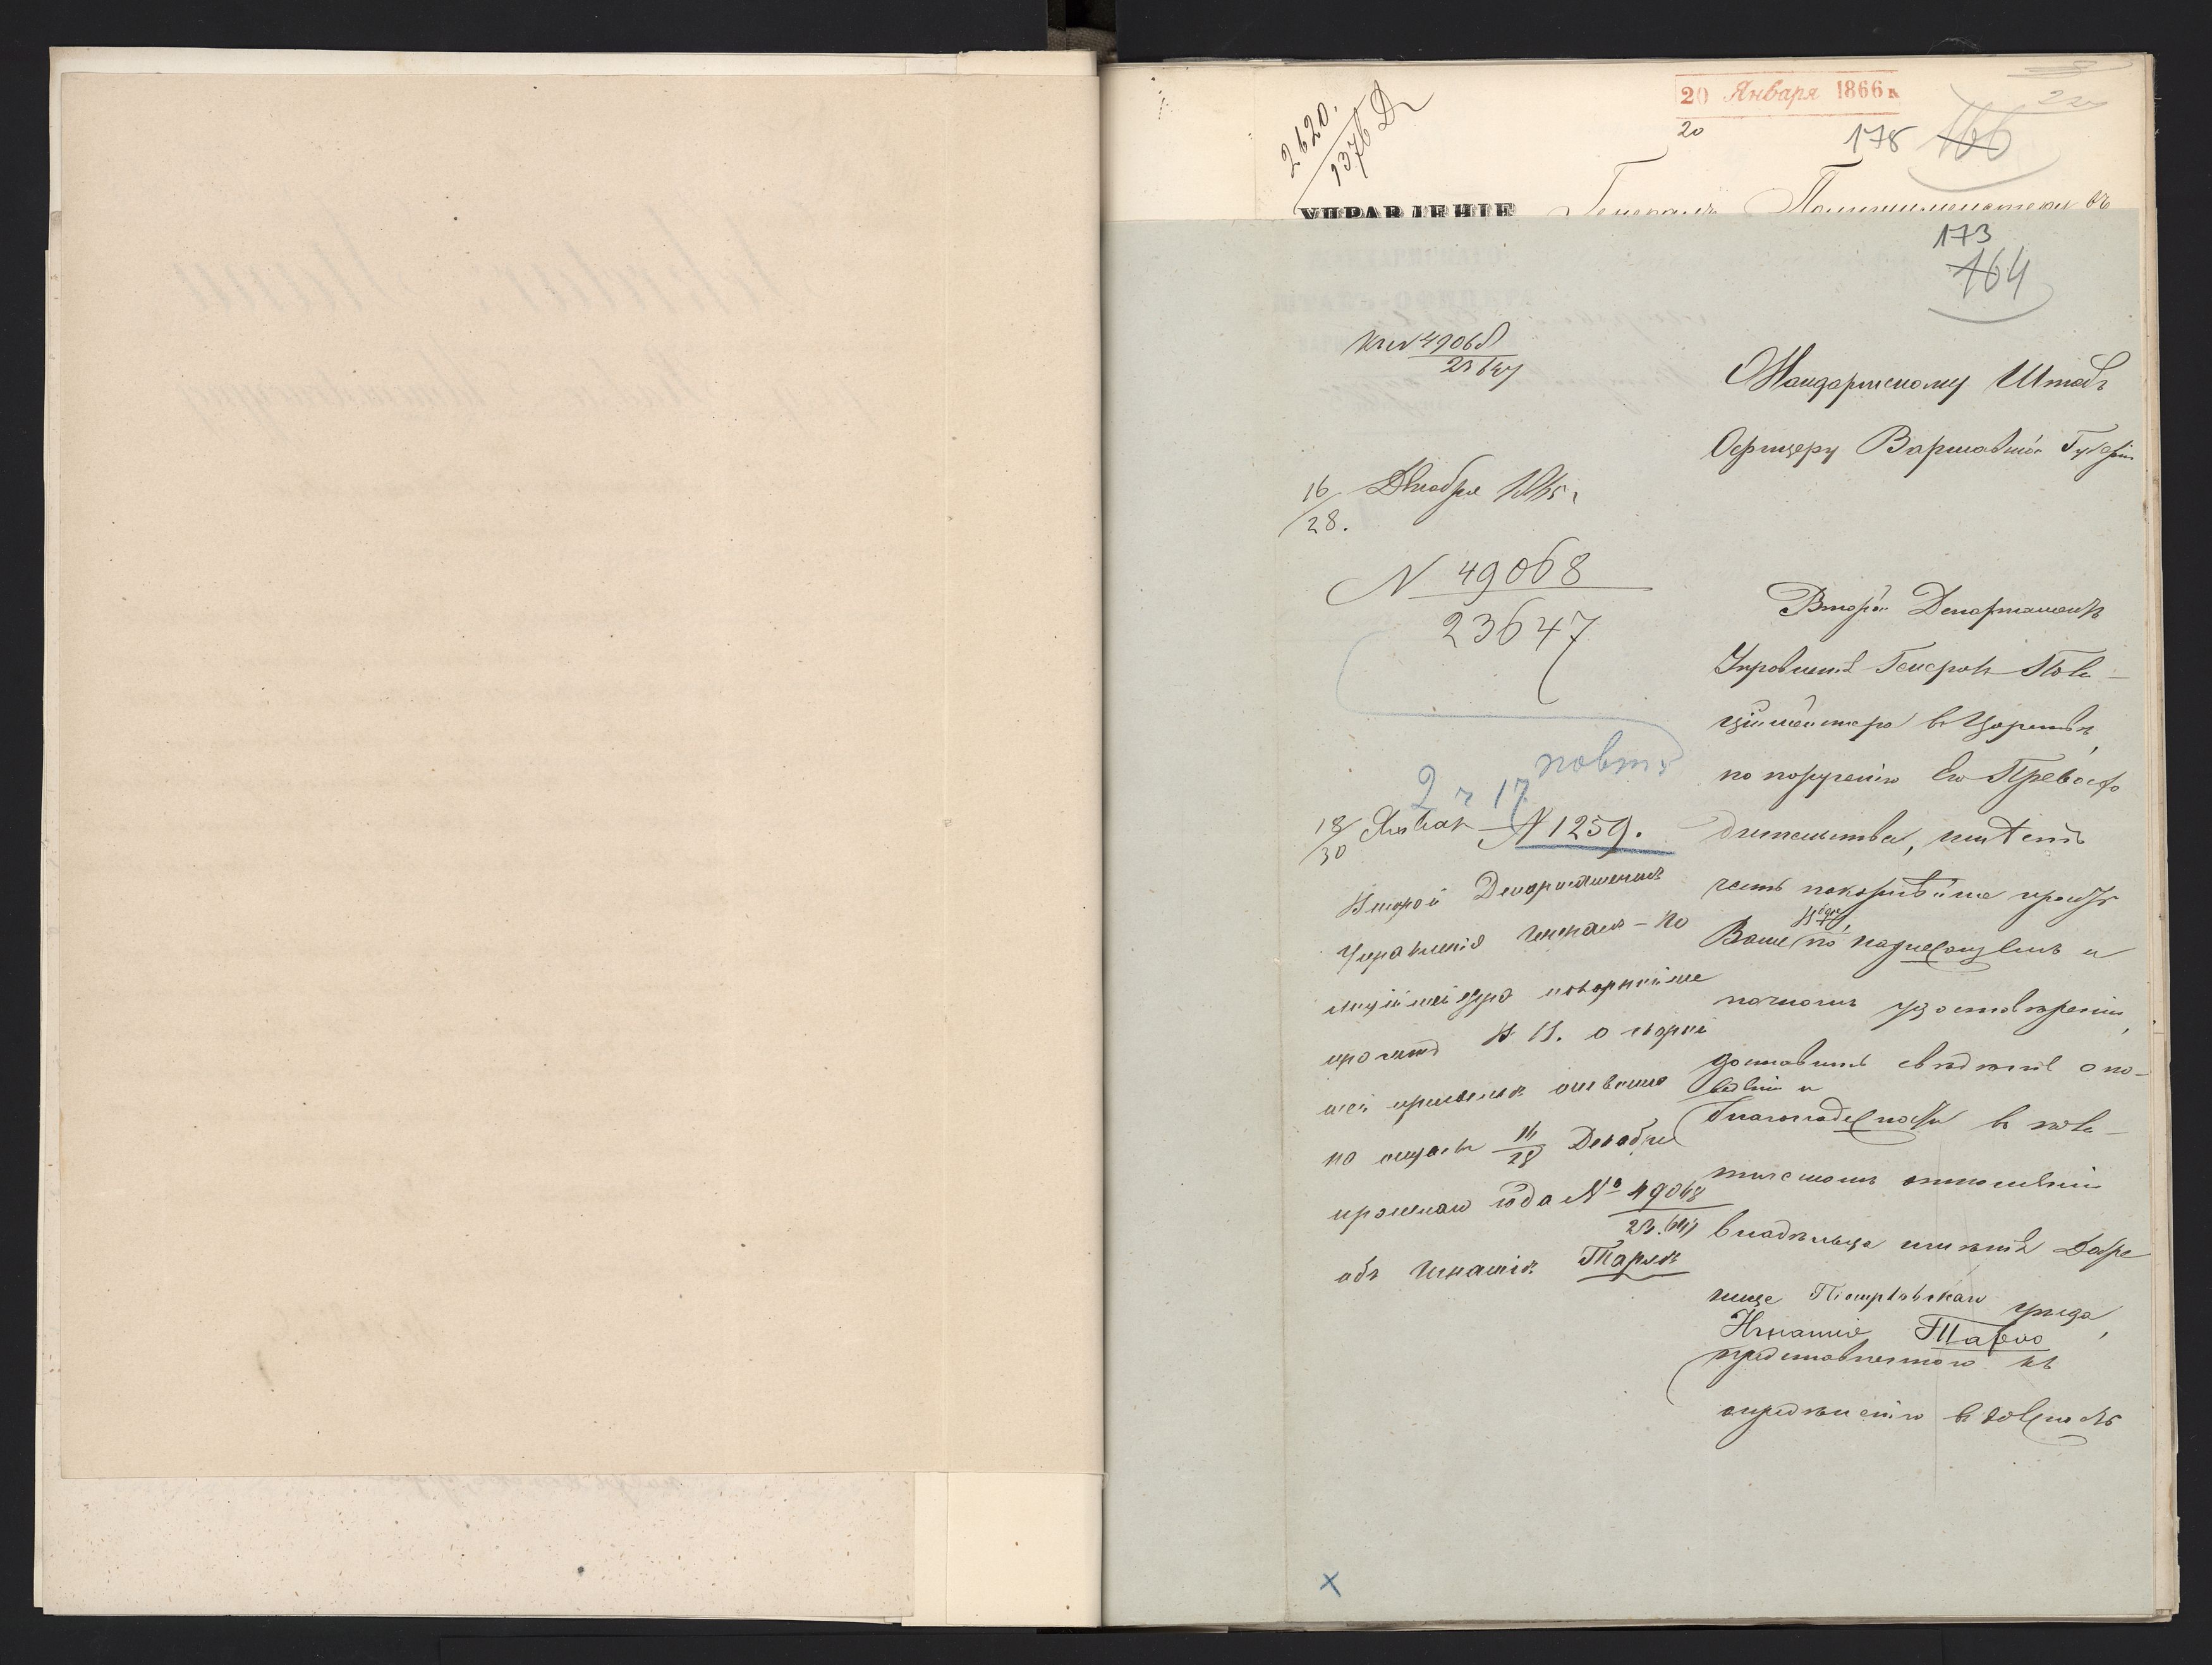 20 Января 1866 г.
20
2620.
1376 Д
178 166
УПРАВЛЕНІЕ
Генералъ Полиціймейстеру въ
173
164
К № 49068
23647
Жандармскому Штабъ
Офицеру Варшавской Губерніи
16/28. Декабря 1865 г.
N 49068
23647
Второй Департаментъ
Управленія Генералъ Поли-
ціймейстера въ Царствѣ,
по порученію Его Превосхо
дительства, имѣетъ
честь покорнѣйше просить
Ваше Выс., по надлежащемъ и
точномъ удостовѣреніи,
доставить свѣдѣніе о по-
веденіи и
благонадежности въ поли-
тическомъ отношеніи
владѣльца имѣнія
Піотрковскаго уѣзда,
Игнатія Тарло
представленнаго къ
опредѣленію въ должность
повт
2 ч 17
18/30 Января N 1259.
Второй Департаментъ
Управленія Генералъ-По
лиціймейстера покорнѣйше
проситъ В. В. о скорѣй
шей присылкѣ отвѣта
на отзывъ 16/28 Декабря
прошлаго года № 49068
23.647
объ Игнатіѣ Тарло